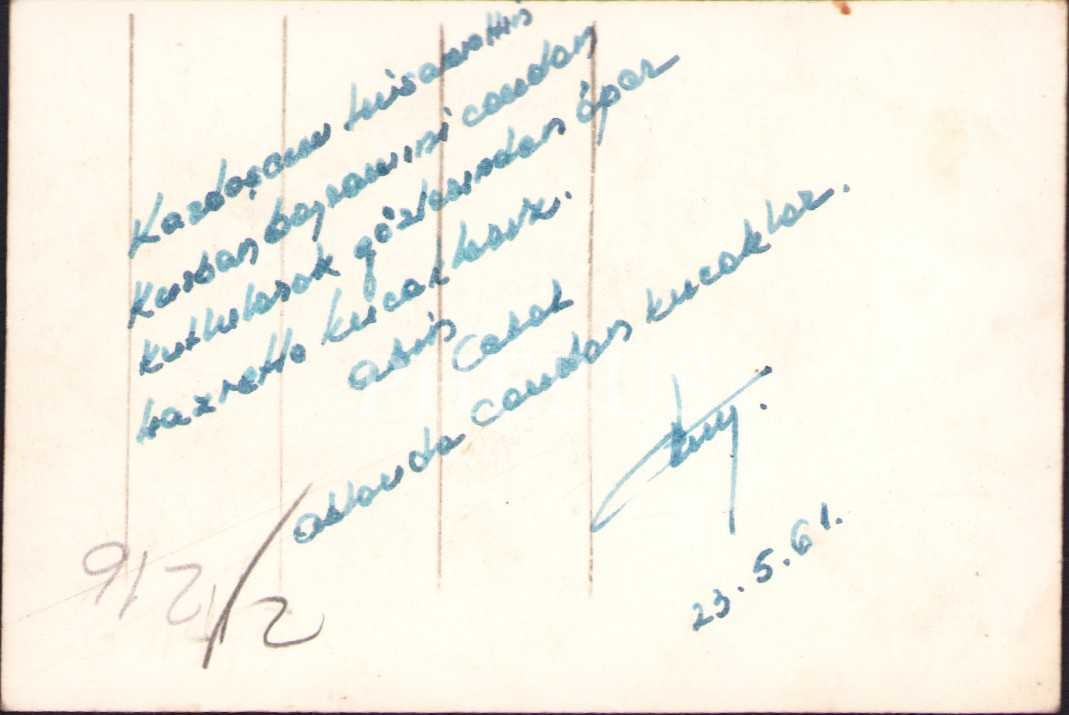 Kardeşum hisamettin
Kurban bayramını candan
kutlularak gözlerinden öper
hazretle kucaklarız.
abin
Celal
ablanda candan kucaklar.
23.5.61.
9/2/6
2